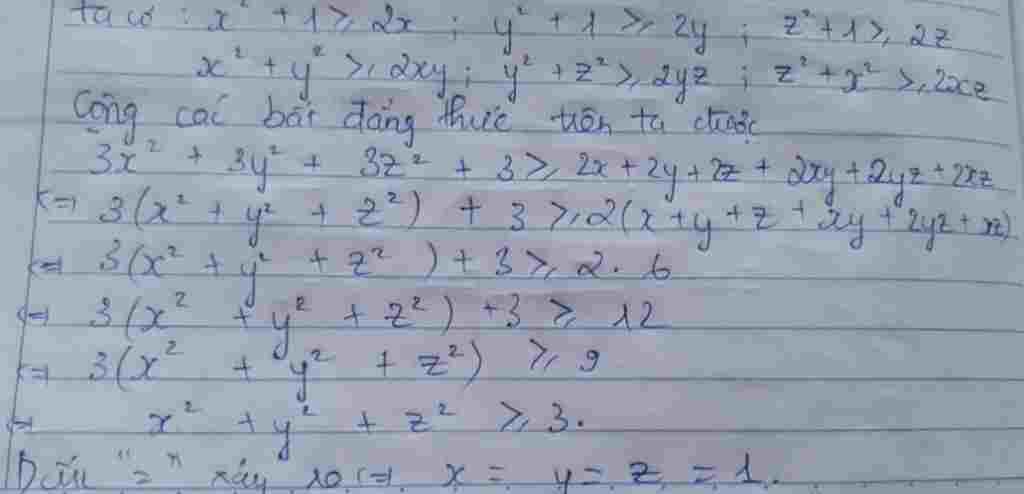 ta có : x² + 1 ≥ 2x ; y² + 1 ≥ 2y ; z² + 1 ≥ 2z
x² + y² ≥ 2xy ; y² + z² ≥ 2yz ; z² + x² ≥ 2xz
Cộng các bất đẳng thức trên ta được
3x² + 3y² + 3z² + 3 ≥ 2x + 2y + 2z + 2xy + 2yz + 2xz
<=> 3(x² + y² + z²) + 3 ≥ 2(x + y + z + xy + 2yz + xz)
<=> 3(x² + y² + z²) + 3 ≥ 2.6
<=> 3(x² + y² + z²) + 3 ≥ 12
<=> 3(x² + y² + z²) ≥ 9
<=> x² + y² + z² ≥ 3.
Dấu "=" xảy ra <=> x = y = z = 1.